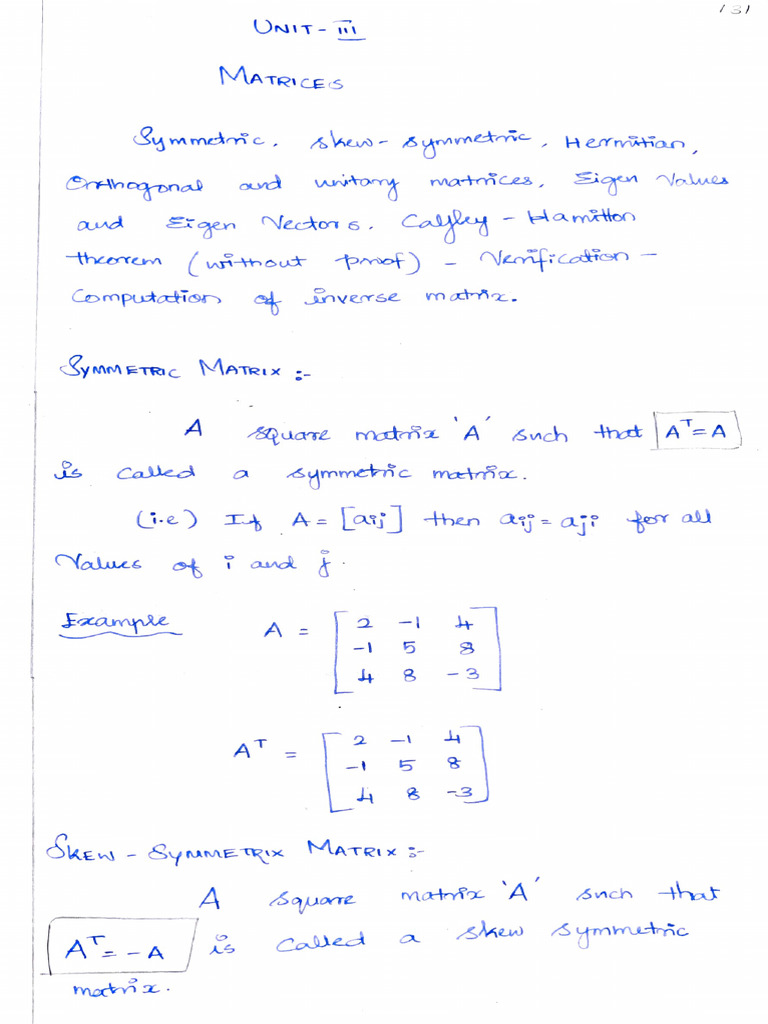 131
UNIT - III
MATRICES
Symmetric, skew - symmetric, Hermitian,
Orthogonal and unitary matrices, Eigen Values
and Eigen Vectors. Calyley - Hamilton
theorem (without proof) - Verification -
Computation of inverse matrix.
SYMMETRIC MATRIX :-
A square matrix 'A' such that Aᵀ = A
is called a symmetric matrix.
(i.e) If A = [aij] then aij = aji for all
Values of i and j.
Example A = [ 2 -1 4
-1 5 8
4 8 -3 ]
Aᵀ = [ 2 -1 4
-1 5 8
4 8 -3 ]
SKEW - SYMMETRIX MATRIX :-
A square matrix 'A' such that
Aᵀ = -A is called a skew symmetric
matrix.